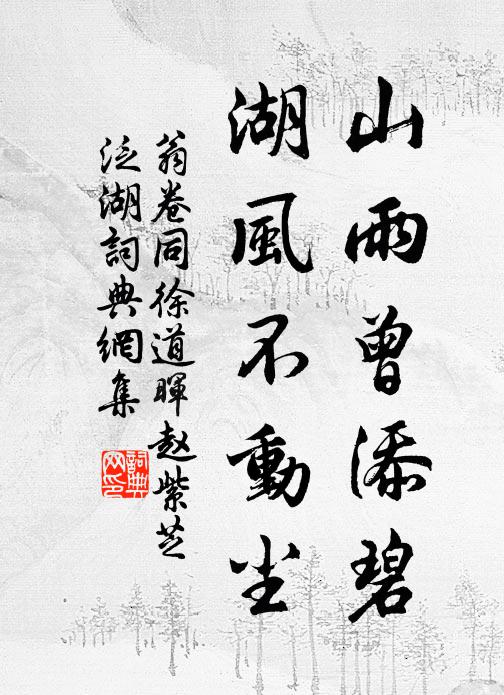 山雨曾添碧
湖風不動尘
翁卷同徐道暉赵紫芝
泛湖詞典網集
詞典
网印